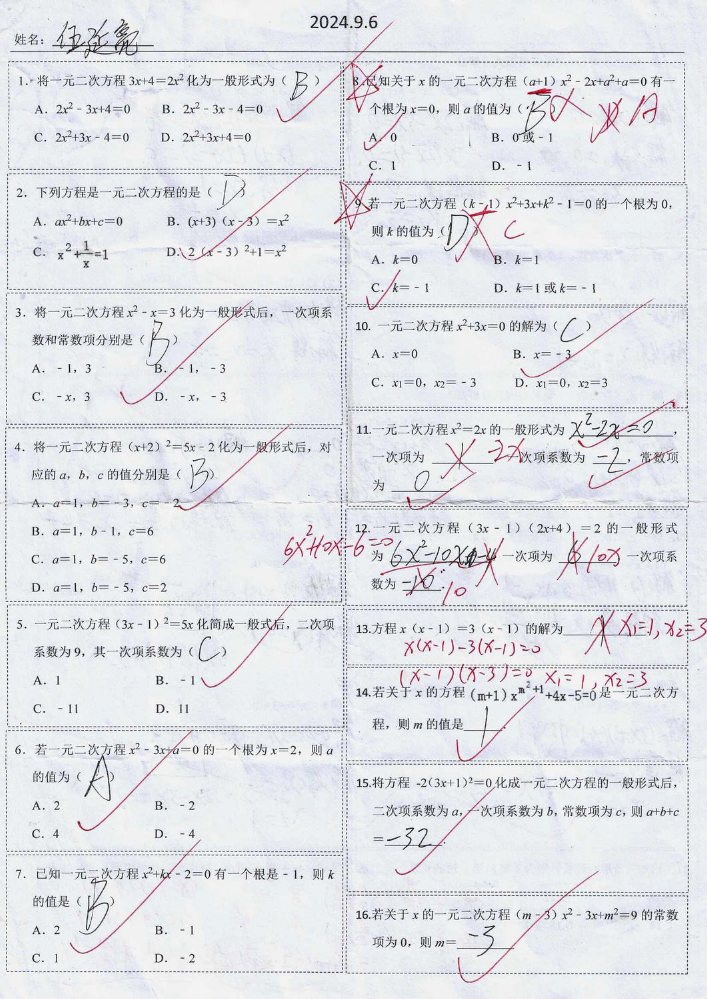 2024.9.6
姓名：伍延亮
1．将一元二次方程 3x+4=2x²化为一般形式为（ B ）
A．2x²﹣3x+4=0 B．2x²﹣3x﹣4=0
C．2x²+3x﹣4=0 D．2x²+3x+4=0
2．下列方程是一元二次方程的是（ D ）
A．ax²+bx+c=0 B．(x+3)（x﹣3）=x²
C．x²+1/x=1 D．2（x﹣3）²+1=x²
3．将一元二次方程 x²﹣x=3 化为一般形式后，一次项系
数和常数项分别是（ B ）
A．﹣1，3 B．﹣1，﹣3
C．﹣x，3 D．﹣x，﹣3
4．将一元二次方程（x+2）²=5x﹣2 化为一般形式后，对
应的 a，b，c 的值分别是（ B ）
A．a=1，b=﹣3，c=﹣2
B．a=1，b﹣1，c=6
C．a=1，b=﹣5，c=6
D．a=1，b=﹣5，c=2
5．一元二次方程（3x﹣1）²=5x 化简成一般式后，二次项
系数为 9，其一次项系数为（ C ）
A．1 B．﹣1
C．﹣11 D．11
6．若一元二次方程 x²﹣3x+a=0 的一个根为 x=2，则 a
的值为（ A ）
A．2 B．﹣2
C．4 D．﹣4
7．已知一元二次方程 x²+kx﹣2=0 有一个根是﹣1，则 k
的值是（ B ）
A．2 B．﹣1
C．1 D．﹣2
8.已知关于 x 的一元二次方程（a+1）x²﹣2x+a²+a=0 有一
个根为 x=0，则 a 的值为（ B ） A
A．0 B．0 或﹣1
C．1 D．﹣1
9.若一元二次方程（k﹣1）x²+3x+k²﹣1=0 的一个根为 0，
则 k 的值为（ D ） C
A．k=0 B．k=1
C．k=﹣1 D．k=1 或 k=﹣1
10．一元二次方程 x²+3x=0 的解为（ C ）
A．x=0 B．x=﹣3
C．x₁=0，x₂=﹣3 D．x₁=0，x₂=3
11.一元二次方程 x²=2x 的一般形式为 x²-2x=0 ，
一次项为 -2x 次项系数为 -2 ，常数项
为 0
12.一元二次方程（3x﹣1）（2x+4）=2 的一般形式
6x²+10x-6=0
为 一次项为 10x 一次项系
数为 10
13.方程 x（x﹣1）=3（x﹣1）的解为 x₁=1, x₂=3
x(x-1)-3(x-1)=0
(x-1)(x-3)=0 x₁=1, x₂=3
14.若关于 x 的方程 (m+1)x^(m²+1)+4x-5=0是一元二次方
程，则 m 的值是 1
15.将方程 -2(3x+1)²=0 化成一元二次方程的一般形式后，
二次项系数为 a，一次项系数为 b，常数项为 c，则 a+b+c
= -32 .
16.若关于 x 的一元二次方程（m﹣3）x²﹣3x+m²=9 的常数
项为 0，则 m= -3